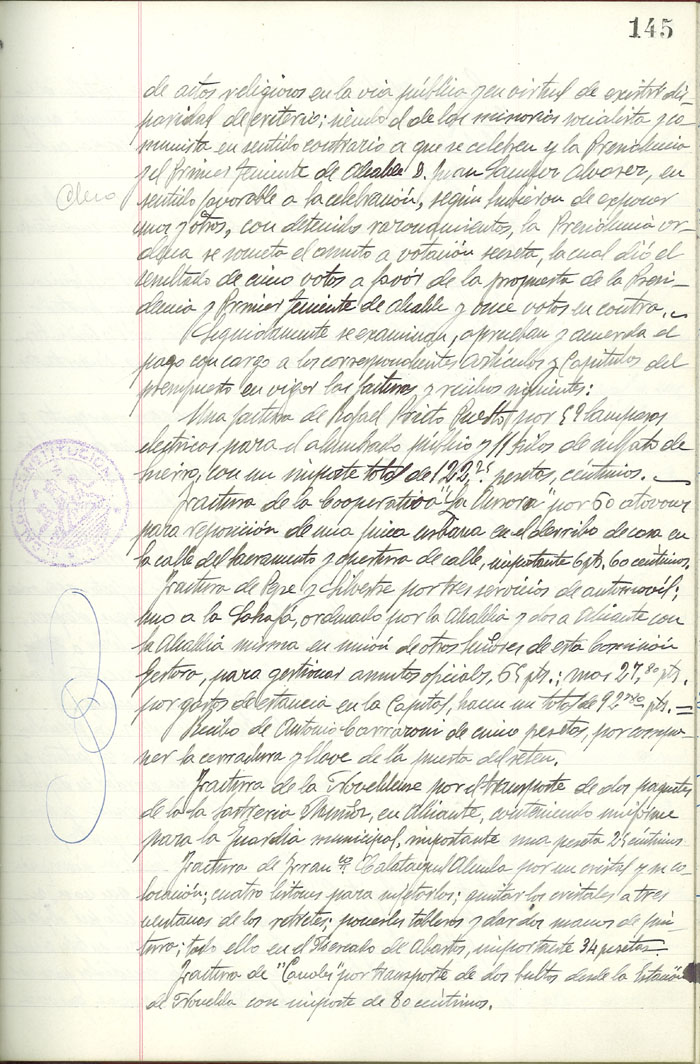 145
de actos religiosos en la vía pública y en virtud de existir dis-
paridad de criterio; siendo el de las minorías socialista y co-
munista en sentido contrario a que se celebren y la Presidencia
y el Primer Teniente de Alcalde D. Juan Alvarez, en
sentido favorable a la celebración, según hubieron de exponer
unos y otros, con detenidos razonamientos, la Presidencia or-
dena se someta el asunto a votación secreta, la cual dió el
resultado de cinco votos a favor de la propuesta de la Presi-
dencia y Primer Teniente de alcalde y once votos en contra.
Seguidamente se examinan, aprueban y acuerda el
pago con cargo a los correspondientes Artículos y Capítulos del
presupuesto en vigor las facturas y recibos siguientes:
Una factura de Rafael Prieto por 59 lámparas
eléctricas para el alumbrado público y 11 kilos de sulfato de
hierro, con un importe total de 122,25 pesetas, céntimos.
Factura de la Cooperativa "La Aurora" por 60
para reposición de una finca urbana en el derribo de casa en
la calle del Sacramento y apertura de calle, importante 6 pts, 60 céntimos.
Factura de Pepe y Silvestre por tres servicios de automovil:
uno a la ordenado por la Alcaldía y dos a Alicante con
la Alcaldía misma en unión de otros señores de esta Comisión
Gestora, para gestionar asuntos oficiales, 65 pts.; mas 27,80 pts.
por gastos de estancia en la Capital, hacen un total de 92,80 pts.
Recibo de Antonio de cinco pesetas, por compo-
ner la cerradura y llave de la puerta del
Factura de la Noveldense por el transporte de dos paquetes
de la Sastrería en Alicante, conteniendo uniforme
para la Guardia municipal, importante una peseta 25 céntimos
Factura de Franco. Calatayud por un cristal y su co-
locación; cuatro listones para sujetarlos; quitar los cristales a tres
ventanas de los retretes; ponerles tableros y dar dos manos de pin-
tura; todo ello en el Mercado de Abastos, importante 34 pesetas
Factura de por transporte de dos bultos desde la Estación
de Novelda con importe de 80 céntimos.
CONSTITUCIONAL